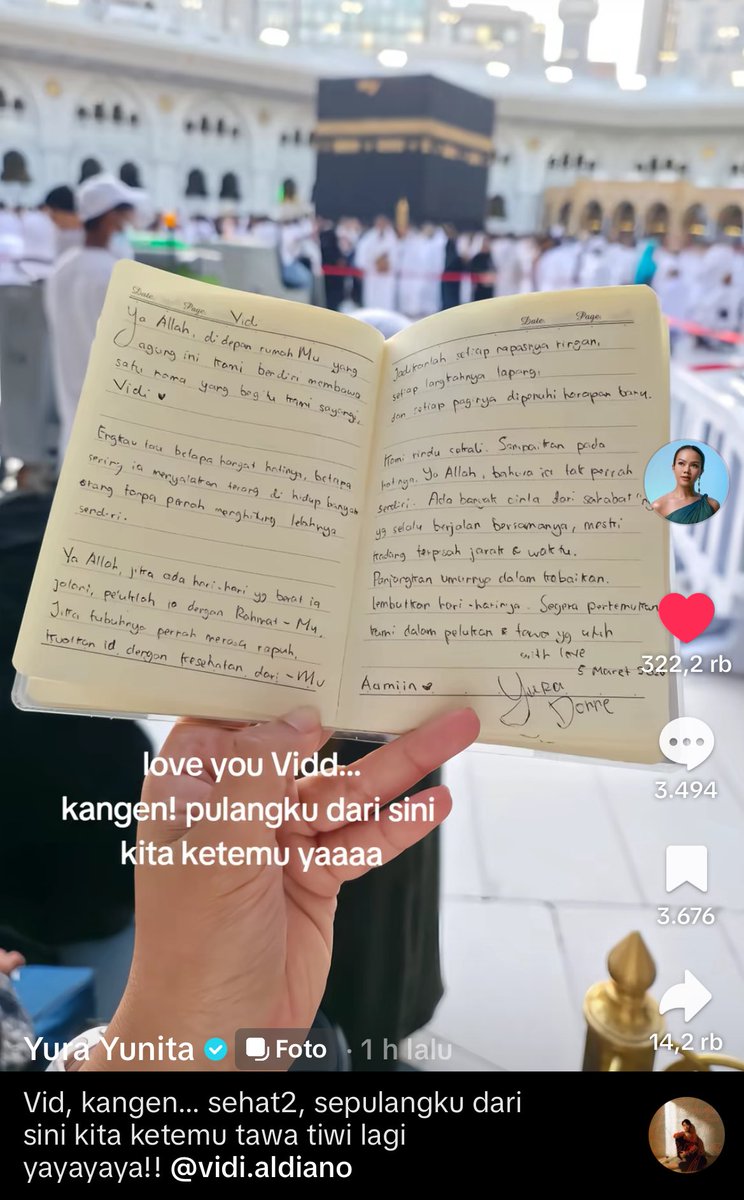 Date. Page.
Vid
Ya Allah, di depan rumah Mu yang
agung ini kami berdiri membawa
satu nama yang begitu kami sayangi,
Vidi ♥
Engkau tau betapa hangat hatinya, betapa
sering ia menyalakan terang di hidup banyak
orang tanpa pernah menghitung lelahnya
sendiri.
Ya Allah, jika ada hari-hari yg berat ia
jalani, peluklah ia dengan Rahmat-Mu,
Jika tubuhnya pernah merasa rapuh,
kuatkan id dengan kesehatan dari-Mu
Date. Page.
Jadikanlah setiap napasnya ringan,
setiap langkahnya lapang,
dan setiap paginya dipenuhi harapan baru.
Kami rindu sekali. Sampaikan pada
hatinya. Ya Allah, bahwa ia tak pernah
sendiri. Ada banyak cinta dari sahabat"
yg selalu berjalan bersamanya, meski
kadang terpisah jarak & waktu.
Panjangkan umurnya dalam kebaikan.
Lembutkan hari-harinya. Segera pertemukan
kami dalam pelukan & tawa yg utuh
with love
5 Maret
Aamiin ♥
Yura
Donne
love you Vidd...
kangen! pulangku dari sini
kita ketemu yaaaa
322,2 rb
3.494
3.676
14,2 rb
Yura Yunita Foto · 1 h lalu
Vid, kangen... sehat2, sepulangku dari
sini kita ketemu tawa tiwi lagi
yayayaya!! @vidi.aldiano